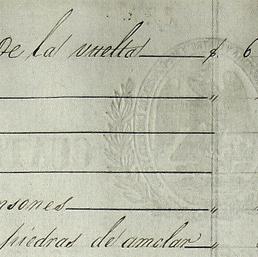 De la vuelta $ 6
"
"
nsones "
piedras de amolar "